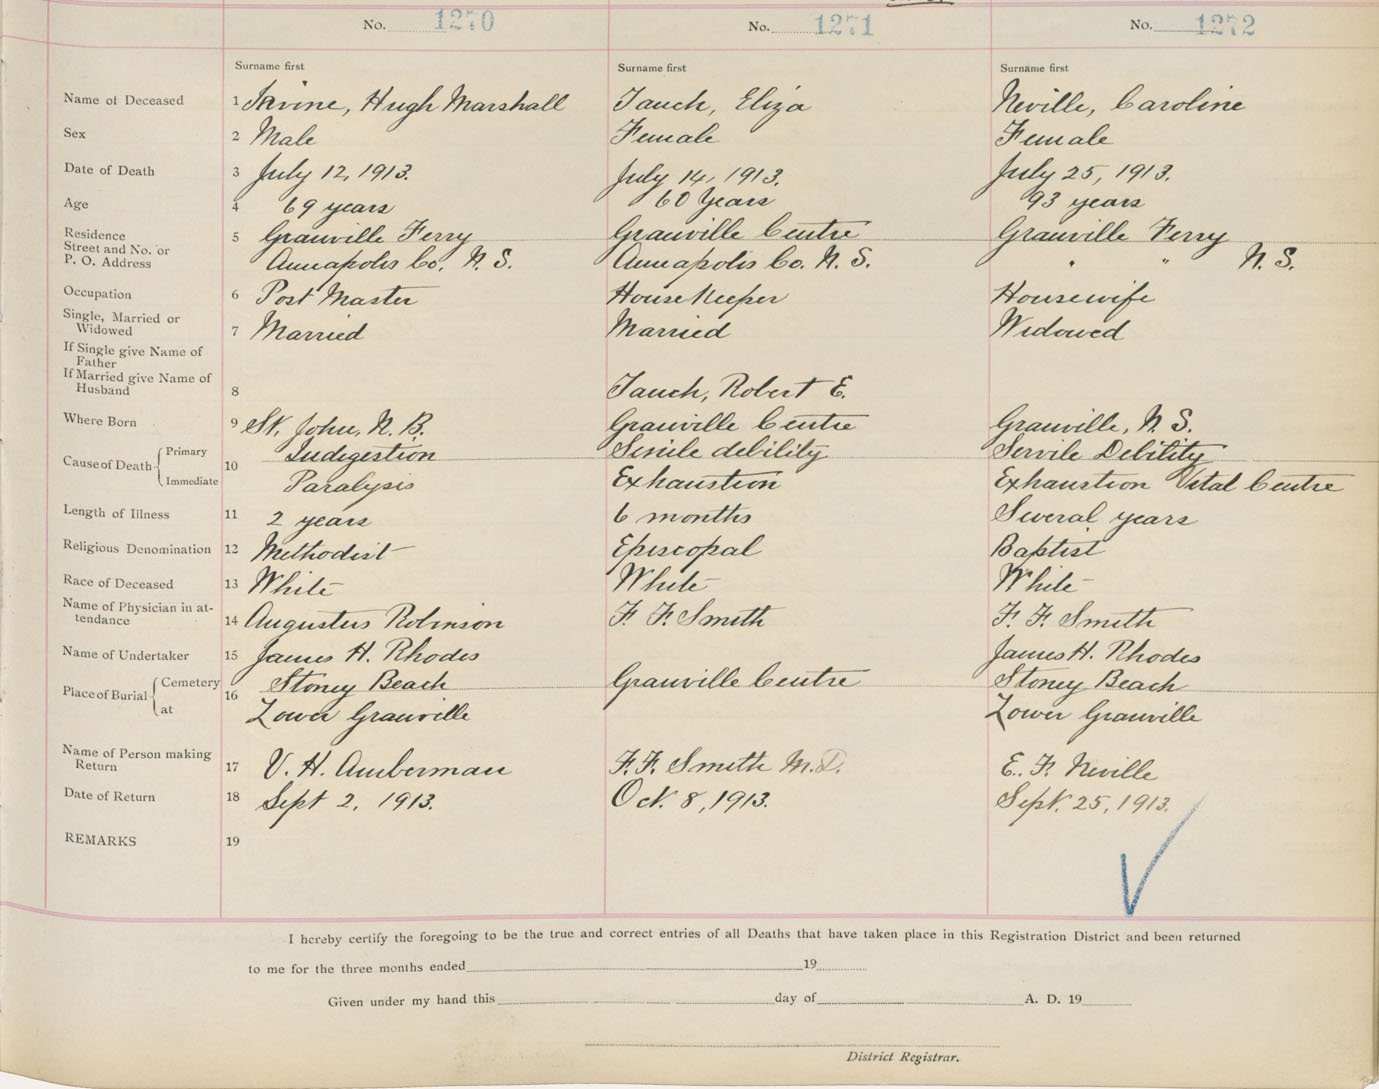 No. 1270 No. 1271 No. 1272
Surname first Surname first Surname first
Name of Deceased 1 Irvine, Hugh Marshall Tauch, Eliza Neville, Caroline
Sex 2 Male Female Female
Date of Death 3 July 12, 1913. July 14, 1913. July 25, 1913.
Age 4 69 years 60 Years 93 years
Residence 5 Granville Ferry Granville Centre Granville Ferry
Street and No. or
P. O. Address Annapolis Co. N. S. Annapolis Co. N. S. " " N. S.
Occupation 6 Post Master House Keeper Housewife
Single, Married or
Widowed 7 Married Married Widowed
If Single give Name of
Father
If Married give Name of
Husband 8 Tauch, Robert E.
Where Born 9 St. John, N. B. Granville Centre Granville, N. S.
Cause of Death Primary 10 Indigestion Senile debility Servile Debility
Immediate Paralysis Exhaustion Exhaustion Vital Centre
Length of Illness 11 2 years 6 months Several years
Religious Denomination 12 Methodist Episcopal Baptist
Race of Deceased 13 White White White
Name of Physician in at-
tendance 14 Augustus Robinson F. F. Smith F. F. Smith
Name of Undertaker 15 James H. Rhodes James H. Rhodes
Place of Burial Cemetery 16 Stoney Beach Granville Centre Stoney Beach
at Lower Granville Lower Granville
Name of Person making
Return 17 V. H. Amberman F. F. Smith M.D. E. F. Neville
Date of Return 18 Sept 2, 1913. Oct. 8, 1913. Sept. 25, 1913.
REMARKS 19
I hereby certify the foregoing to be the true and correct entries of all Deaths that have taken place in this Registration District and been returned
to me for the three months ended 19
Given under my hand this day of A. D. 19
District Registrar.